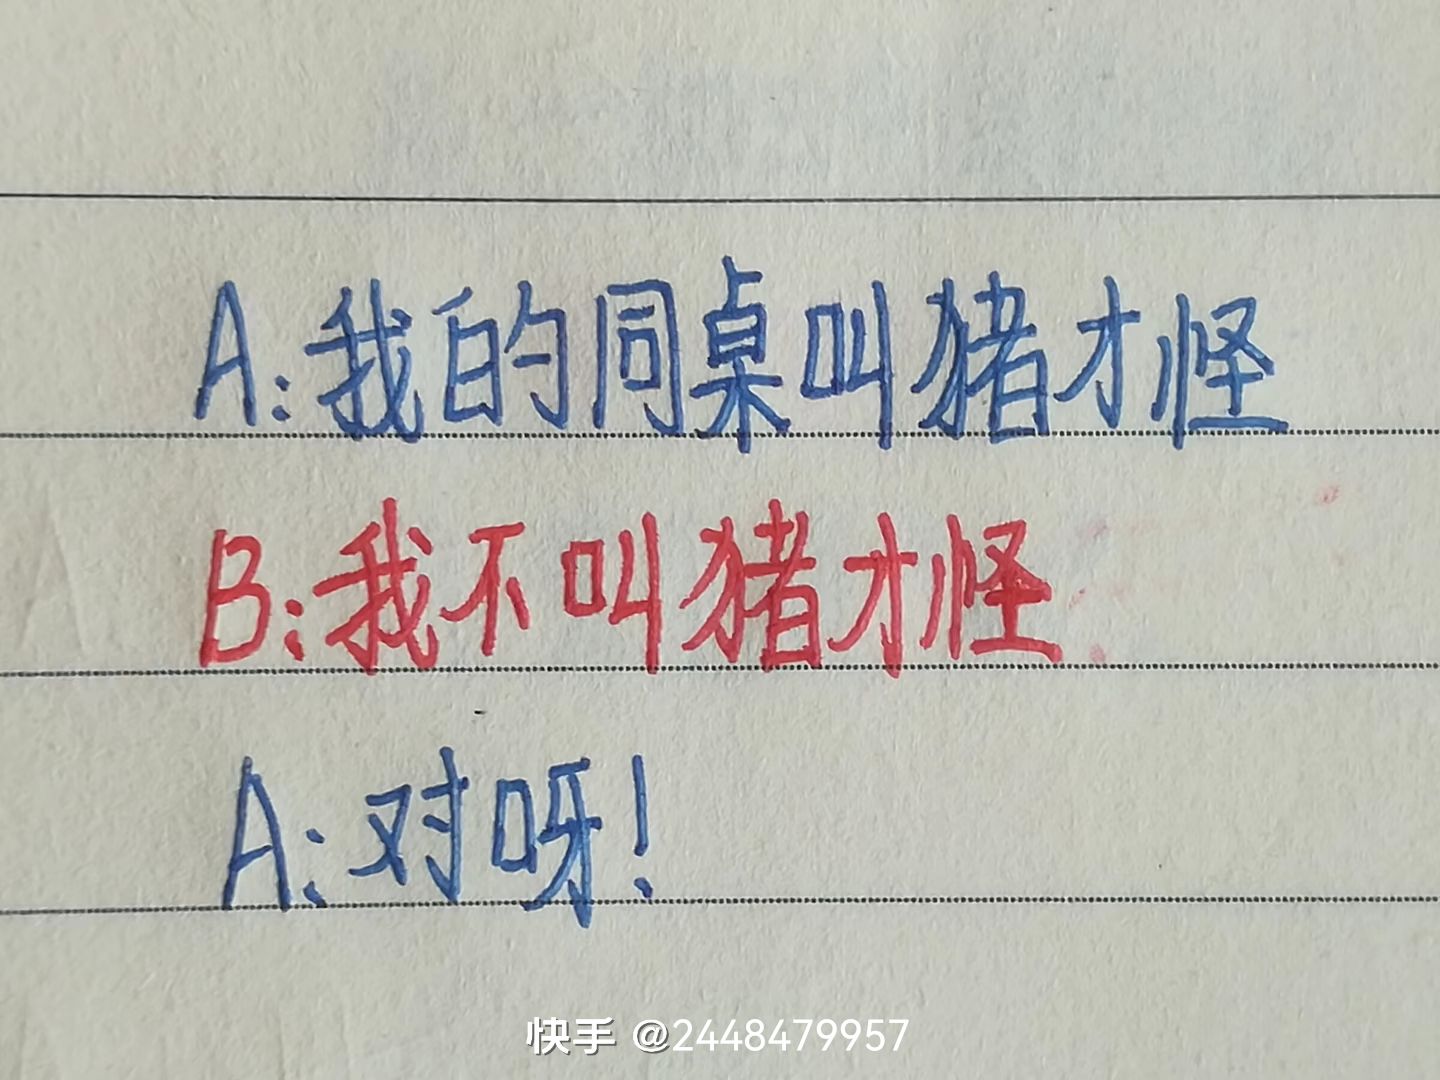 A:我的同桌叫猪才怪
B:我不叫猪才怪
A:对呀!
快手 @2448479957